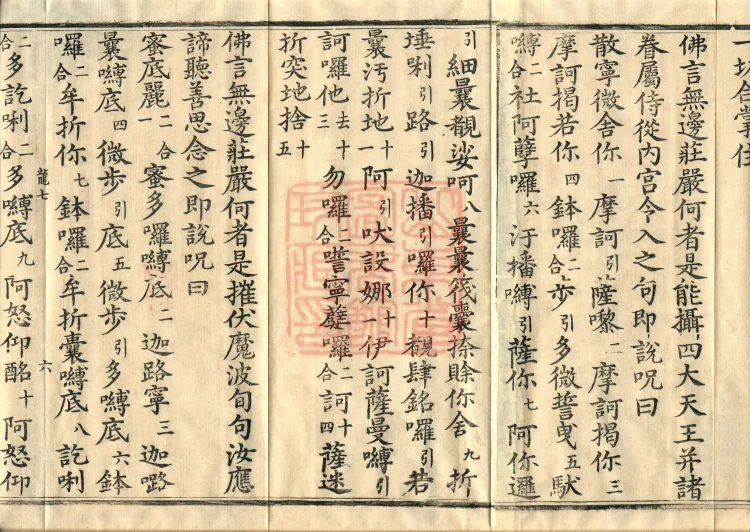 一切合掌住
佛言無邊莊嚴何者是能攝四大天王并諸
眷屬侍從內宮令入之句即說呪曰
散寧微舍你一摩訶引薩嚟二摩訶揭你三
摩訶揭若你四鉢囉二合步引多微誓曳五馱
嚩二合社阿孽囉六汙播嚩引薩你七阿你邐
引細曩覩娑呵八曩曩筏囊捺賒你舍九折
埵唎引路引迦播引囉你十覩肆銘囉引若
曩汙折地十一阿引吠設娜十二伊訶薩曼嚩引
訶囉他去十三勿囉二合誓寧囉二合訶十四薩迷
折突地捨十五
佛言無邊莊嚴何者是摧伏魔波旬句汝應
諦聽善思念之即說呪曰
蜜底麗一蜜多囉二合嚩底二迦路寧三迦嚕
曩嚩底四微步引底五微步引多嚩底六鉢
囉二合牟折你七鉢囉二合牟折囊嚩底八訖唎
二合多訖唎二合多嚩底九阿怒仰酩十阿怒仰
龍七
六